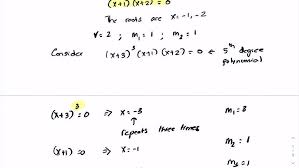 (x+1)(x+2)=0
The roots are x=-1,-2
r=2 ; m₁=1 ; m₂=1
Consider (x+3)³(x+1)(x+2)=0 ← 5th degree polynomial
(x+3)³=0 ⇒ x=-3 m₁=3
↑
repeats three times
(x+1)=0 ⇒ x=-1 m₂=1